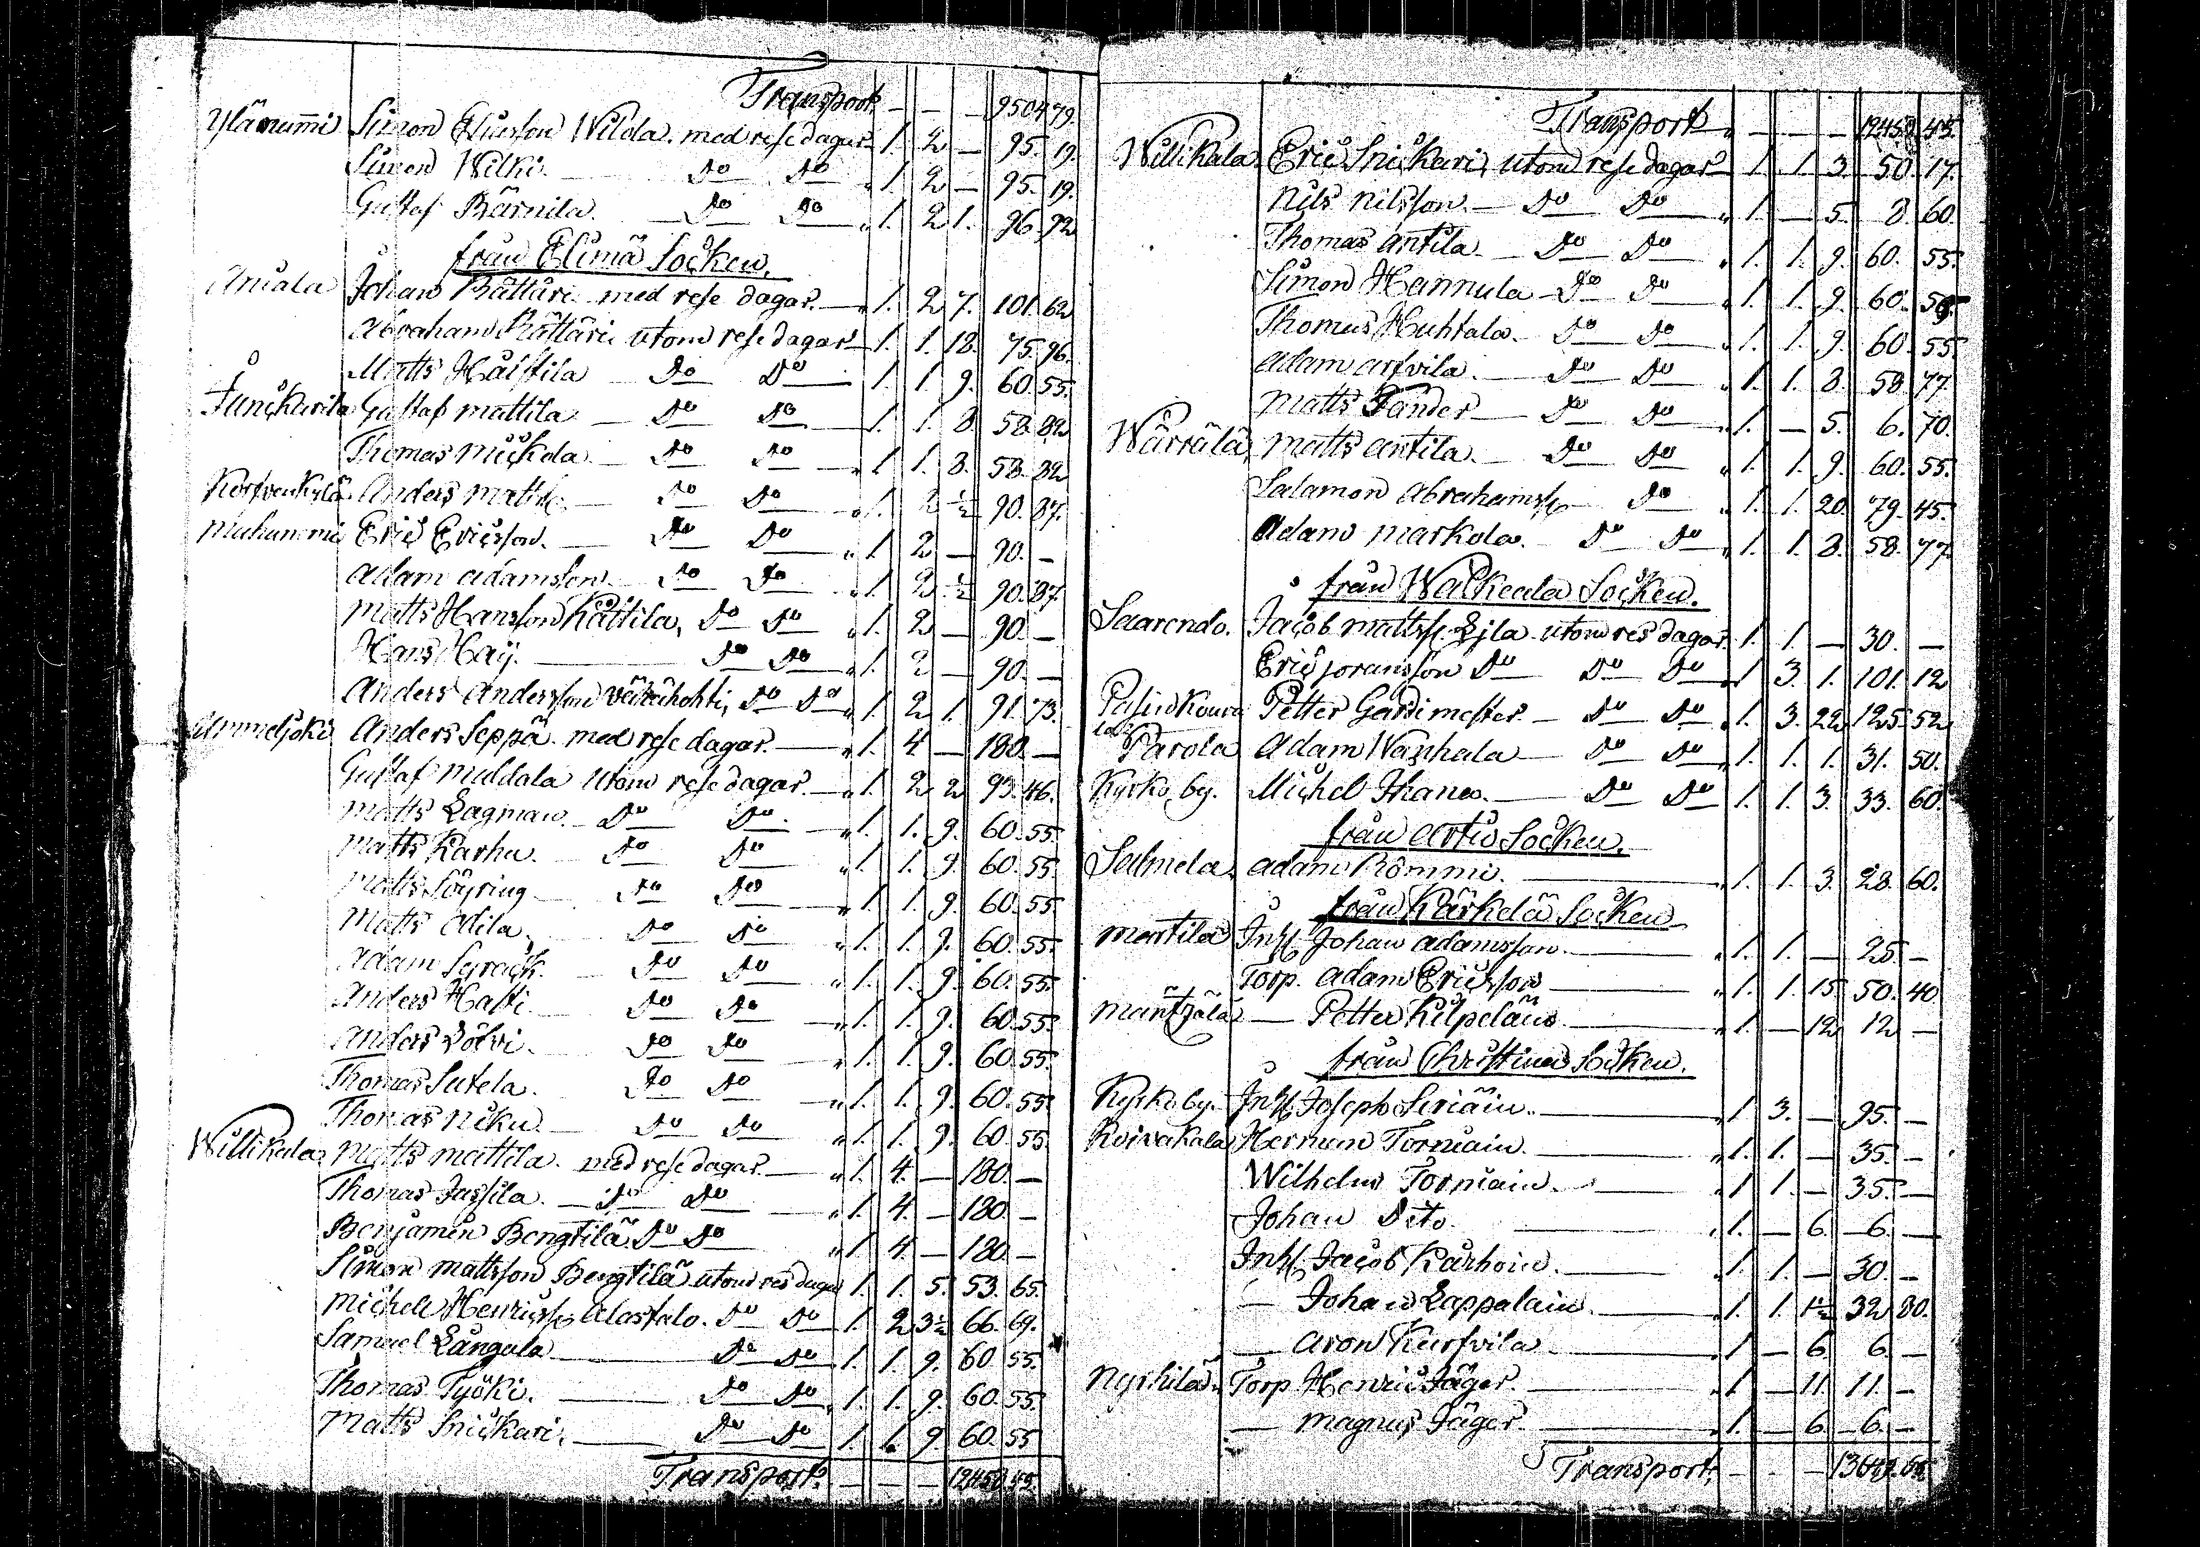 Transport — — — 9504 79.
Ylänummi Simon Ericsson Wilola. med rese dagar 1. 2 — 95. 19.
Simon Wilki. — Do Do 1. 2 — 95. 19.
Gustaf Bärnila. — Do Do 1. 2 1. 96. 92
från Elimä Socken.
Aniala Johan Rättäri med rese dagar. — 1. 2 7. 101. 62
Abraham Rättäri utom rese dagar 1. 1. 18. 75. 96.
Matts — Do Do 1. 1 9. 60. 55.
Junckarila Gustaf mattila — Do Do 1. 1. 8 58. 82
Thomas Mickola — Do Do 1 1. 8. 58. 82
Korfvenkylä Anders Mattila — Do Do 1. 2 ½ 90. 87.
Muhunemi Eric Ericsson. — Do Do 1 2 — 90. —
Adam adamsson. — Do Do 1 2 ½ 90. 87
Matts Hansson Kättila, Do Do 1. 2 — 90. —
Hans Haij. — Do Do 1. 2 — 90. —
Anders Andersson Do Do 1. 2 1. 91. 73.
Ummeljoki Anders Seppä med rese dagar. — 1. 4 — 180. —
Gustaf Muldala utom rese dagar. — 1. 2 2 93. 46.
Matts Lagman. — Do Do. 1. 1. 9. 60. 55.
Matts Karhu. — Do Do 1. 1. 9. 60. 55
Matts Söyring — Do Do 1. 1. 9. 60. 55.
Matts Do Do 1. 1. 9. 60. 55.
Adam Syrack. — Do Do 1. 1. 9. 60. 55.
Anders — Do Do 1. 1. 9. 60. 55.
Anders Do Do 1. 1. 9. 60. 55.
Thomas Sutela. Do Do 1. 1. 9. 60. 55
Thomas Niku. — Do Do 1. 1. 9. 60 55.
Willikala Matts mattila. med rese dagar. — 1. 4. — 180. —
Thomas Jassila. — Do Do 1. 4. — 180. —
Benjamin Bengtilä Do Do 1 4 — 180. —
Simon mattsson Bengtilä utom res dagar 1. 1. 5. 53. 65.
Michel Alastalo. Do Do 1. 2 3½ 66. 69.
Samuel Långula — Do Do 1. 1. 9. 60 55.
Thomas Työki. — Do Do 1. 1. 9. 60. 55.
Matts Snickari. — Do Do 1 1. 9 60. 55
Transport. — — — 12458. 45.
Transport — — — 12458. 45.
Willikala Eric Snickari, utom rese dagar 1. 1. 3. 50. 17.
Nils Nilsson. — Do Do 1. — 5. 8. 60.
Thomas Antila. — Do Do 1. 1. 9. 60. 55.
Simon Hannula — Do Do 1. 1. 9. 60. 55.
Thomas Huhtala. — Do Do 1. 1. 9. 60. 55.
Adam Arfvila. — Do Do 1. 1. 8. 58. 77.
Matts — Do Do 1. — 5. 6. 70.
Wärrälä Matts antila. — Do Do 1. 1. 9. 60. 55.
Salamon Do 1. 1. 20. 79. 45.
Adam markola. — Do Do 1. 1. 8. 58. 77.
från Walkeala Socken.
Saarendo. Jacob utom res dagar. 1. 1. — 30. —
Eric joransson Do Do Do 1 3. 1. 101. 12
Petter Gardimester. — Do Do 1. 3. 22 125 52
Parola Adam Wanhala — Do Do 1. 1. 1. 31. 50.
Kyrko by. Michel Ihanes. — Do Do 1. 1. 3. 33. 60.
från Artsö Socken.
Salmela. adam Römmi. — 1. 1. 3. 28. 60.
från Kärkelä Socken
Martila Inh. Johan adamsson. — 1. 1. — 25. —
Torp. adam Ericsson — 1. 1. 15. 50. 40
Mäntzälä — Petter Kilpeläin — 1. — 12. 12 —
från Christina Socken.
Kyrko by. Inh. Joseph Seriäin. — 1. 3. — 95. —
Koivakala Herman Torniain. — 1. 1. — 35. —
Wilhelm Torniain. — 1 1. — 35. —
Johan Dito. — 1. — 6. 6. —
Inh. Jacob Karhoin. — 1. 1. — 30. —
— Johan Lappalain. — 1. 1. 1½ 32 80.
— Aron Kurfvila — 1. — 6. 6. —
Nyrhilä. Torp. Henric Jäger. — 1. — 11. 11. —
— Magnus Jäger. — 1. — 6. 6. —
Transport. — — —